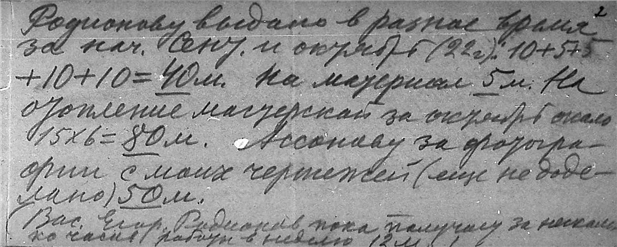 2
Родионову выдало в разное время
за нач. Сент. и октября (22г): 10+5+5
+10+10=40 м. На материал 5 м. На
отопление мастерской за октябрь около
15х6=80 м. Ассонову за фотогра-
фии с моих чертежей (еще не доде-
лано) 50 м.
(Вас. Егор. Родионов пока получал за несколь-
ко часов работы в неделю 12 м.